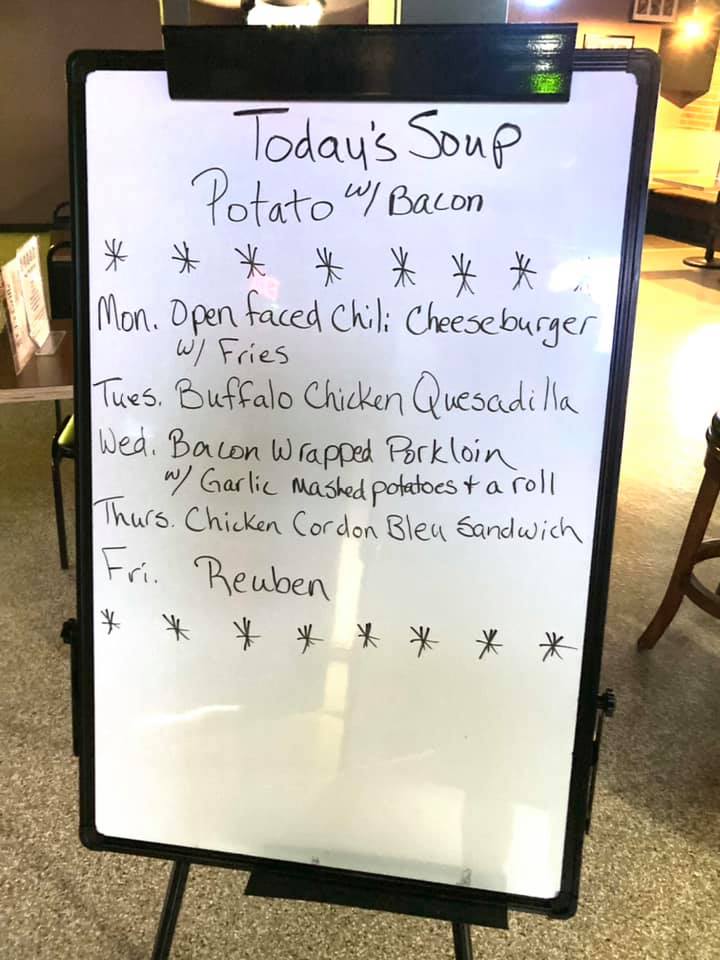 Today's Soup
Potato w/ Bacon
* * * * * * *
Mon. Open faced Chili Cheeseburger
w/ Fries
Tues. Buffalo Chicken Quesadilla
Wed. Bacon Wrapped Porkloin
w/ Garlic Mashed potatoes + a roll
Thurs. Chicken Cordon Bleu Sandwich
Fri. Reuben
* * * * * * * *